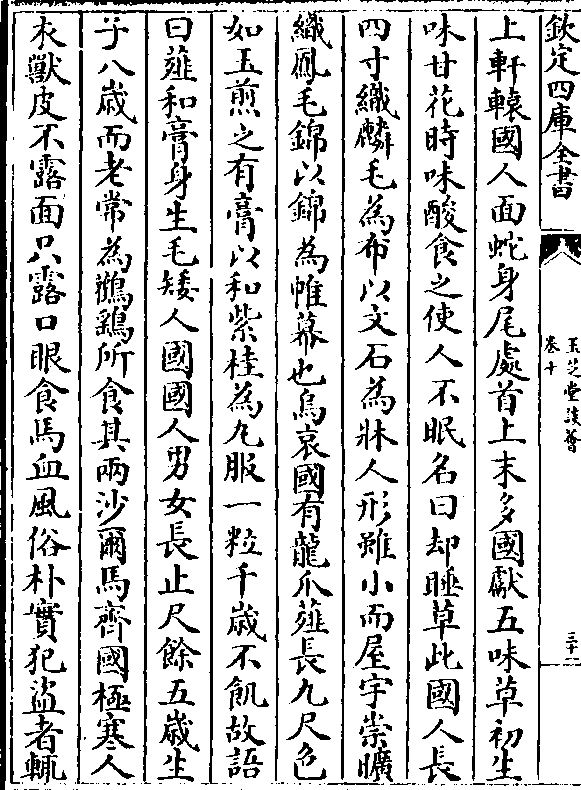 欽定四庫全書
玉芝堂談薈
卷十
三十一
上軒轅國人面蛇身尾處首上末多國獻五味草初生
味甘花時味酸食之使人不眠名曰却睡草此國人長
四寸織麟毛為布以文石為牀人形雖小而屋宇崇曠
織鳳毛錦以錦為帷幕也烏哀國有龍爪薤長九尺色
如玉煎之有膏以和紫桂為丸服一粒千歲不飢故語
曰薤和膏身生毛矮人國國人男女長止尺餘五歲生
子八歲而老常為鸛鷂所食其兩沙爾馬齊國極寒人
衣獸皮不露面只露口眼食馬血風俗朴實犯盜者輒